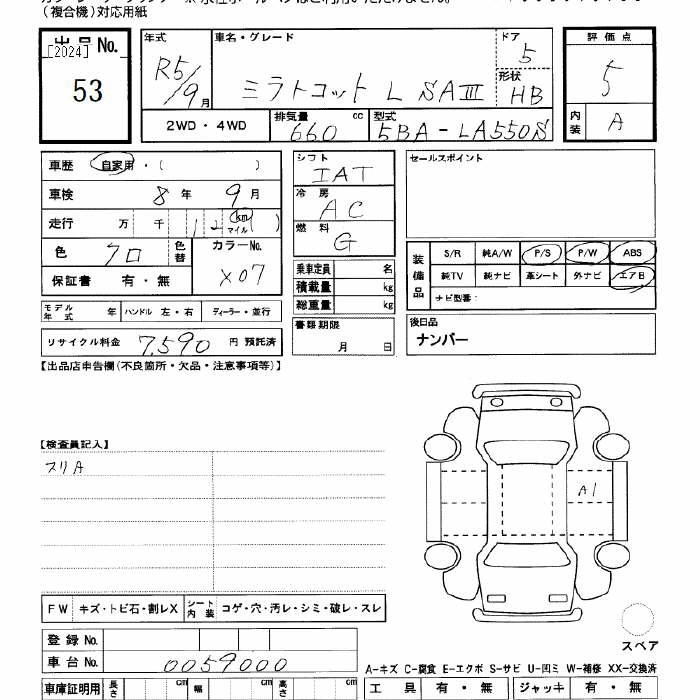 (複合機)対応用紙
出品 No.
[2024]
53
年式 車名・グレード ドア
R5/9月 ミラトコット L SAⅢ 5
形状
HB
2WD・4WD 排気量 cc 型式
660 5BA-LA550S
評価点
5
内装 A
車歴 自家用・( )
車検 8年 9月
走行 万 千 12 (km マイル)
色 クロ 色替 カラーNo.
X07
保証書 有・無
モデル年式 年 ハンドル 左・右 ディーラー・並行
リサイクル料金 7,590 円 預託済
シフト
IAT
冷房
AC
燃料
G
乗車定員 名
積載量 kg
総重量 kg
書類期限
月 日
セールスポイント
装備品
S/R 純A/W P/S P/W ABS
純TV 純ナビ 革シート 外ナビ エアB
ナビ型番:
後日品
ナンバー
【出品店申告欄(不良箇所・欠品・注意事項等)】
【検査員記入】
スリA
A1
FW キズ・トビ石・割レX シート内装 コゲ・穴・汚レ・シミ・破レ・スレ
スペア
登録 No.
車台 No. 0059000
A-キズ C-腐食 E-エクボ S-サビ U-凹ミ W-補修 XX-交換済
車庫証明用 長さ cm 幅 cm 高さ cm
工具 有・無 ジャッキ 有・無